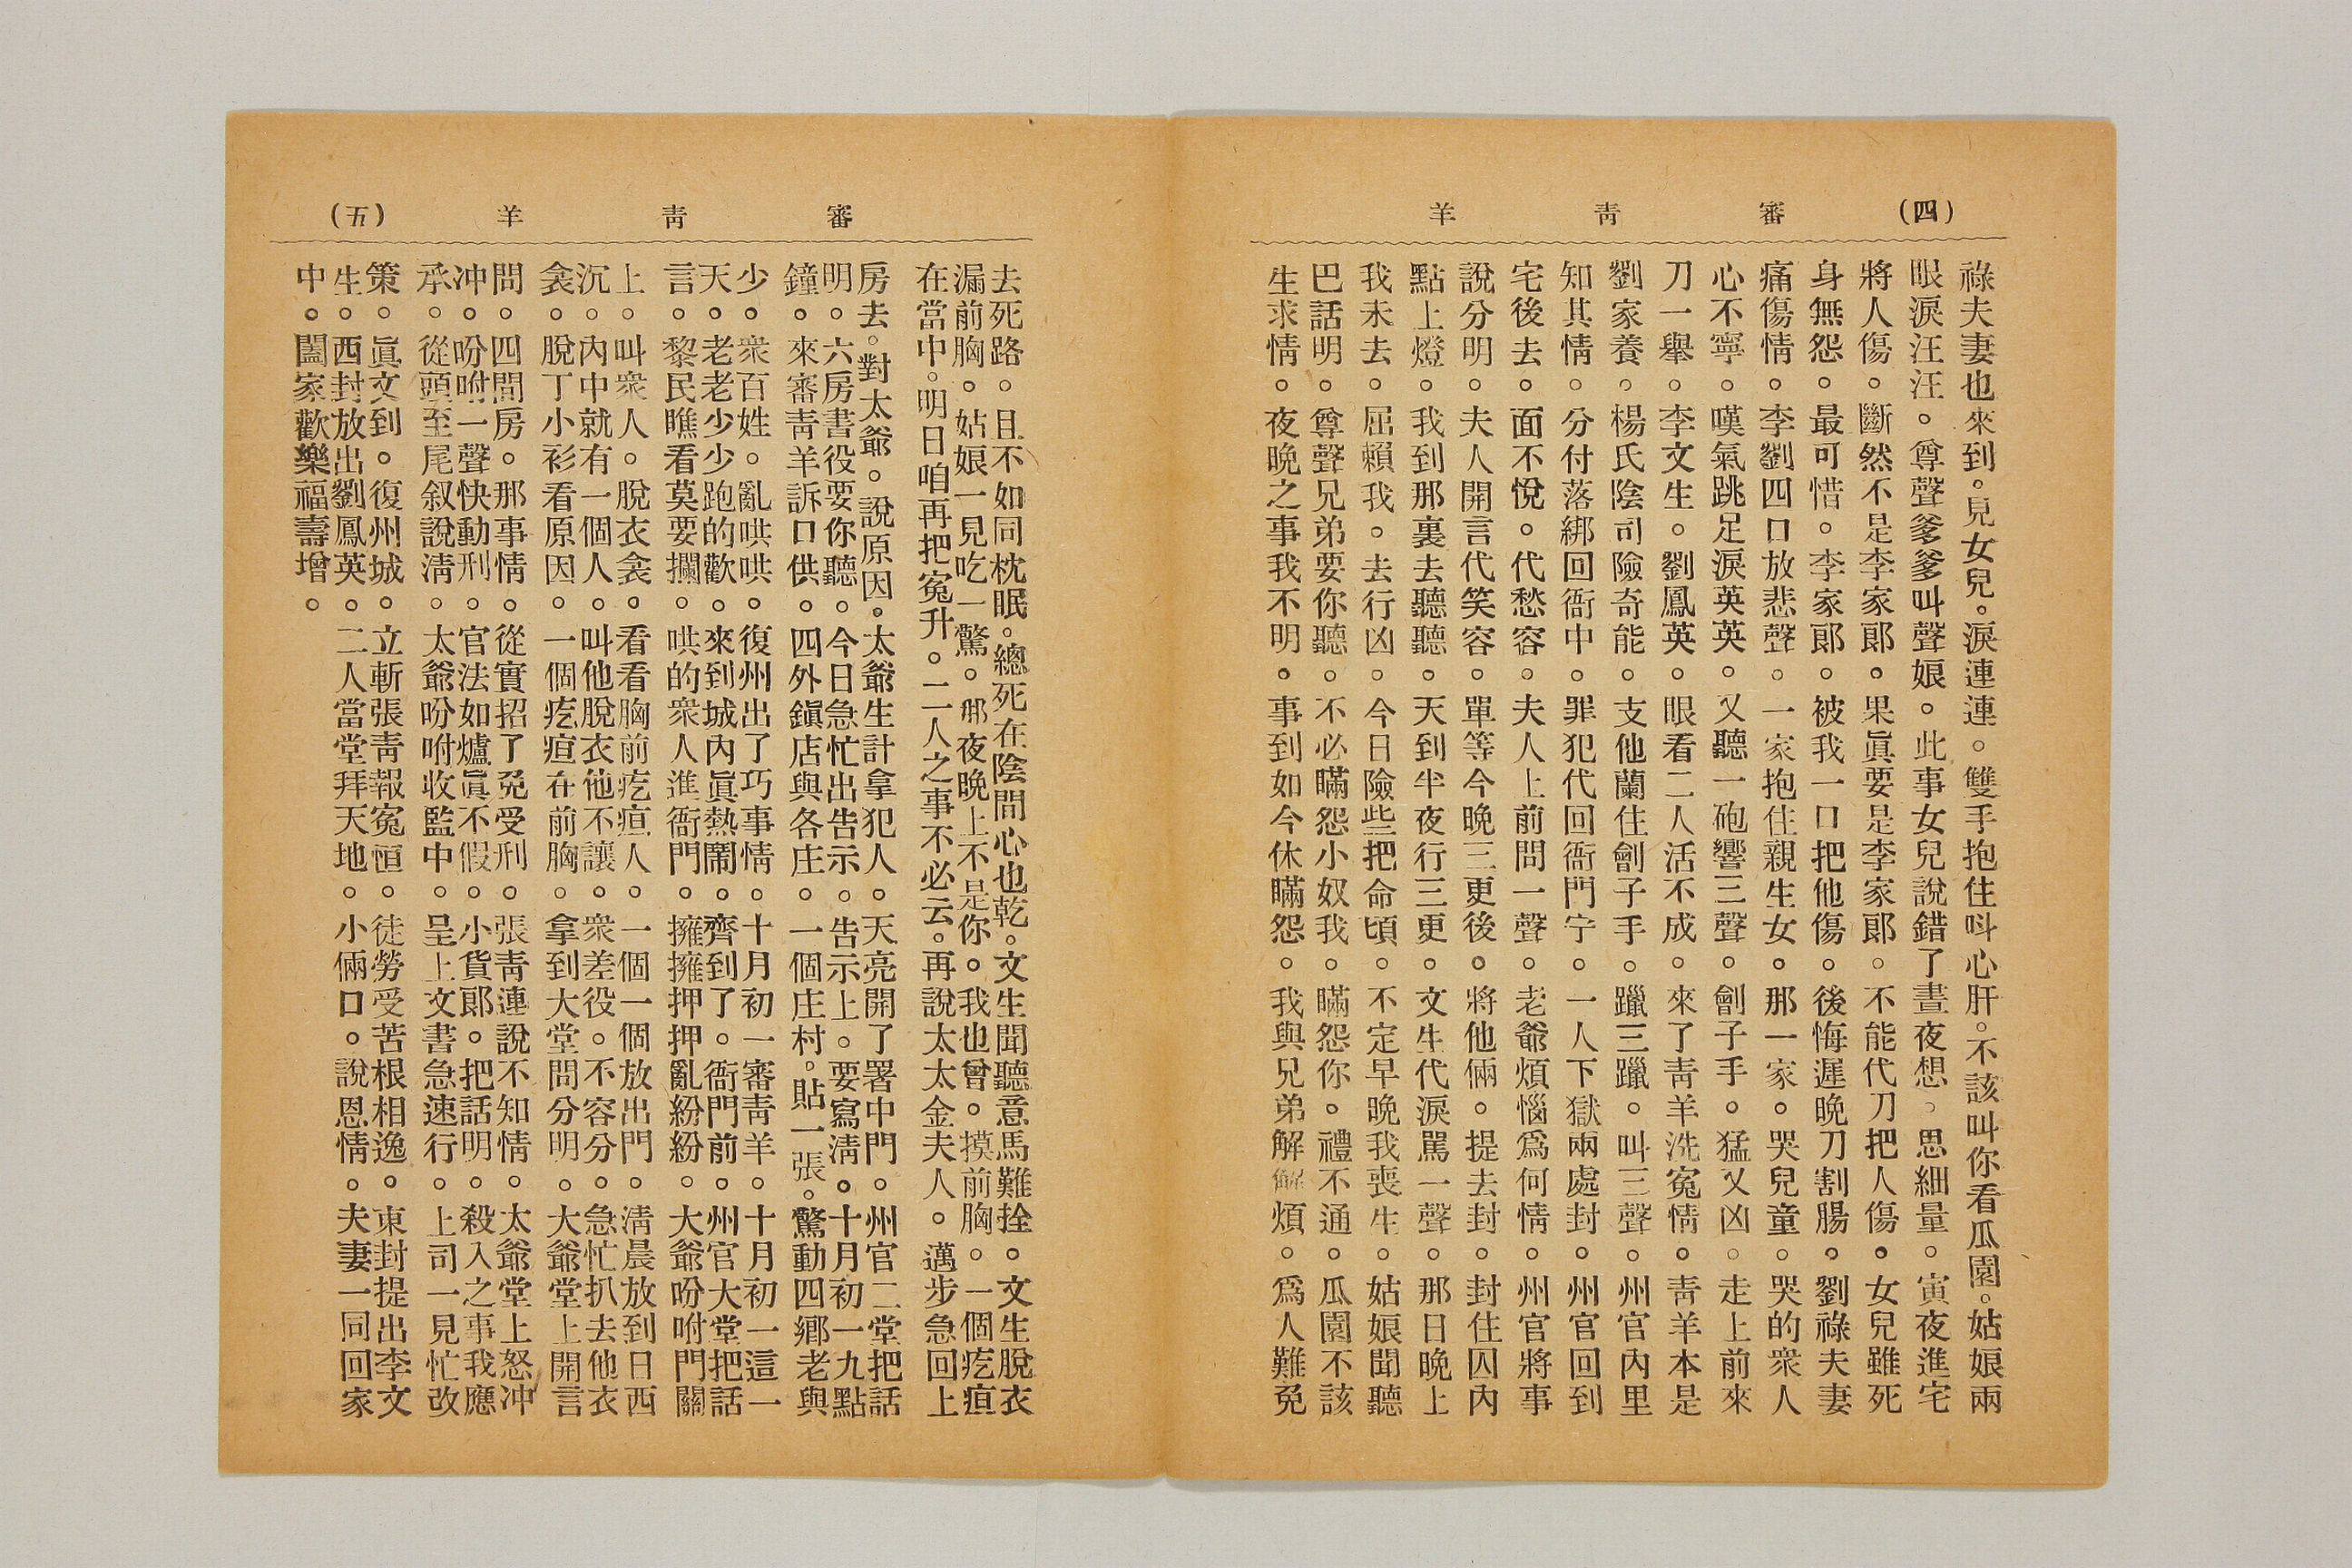 (四)　審　靑　羊
祿夫妻也來到。兒女兒。淚連連。雙手抱住呌心肝。不該叫你看瓜園。姑娘兩
眼淚汪汪。尊聲爹爹叫聲娘。此事女兒說錯了晝夜想。思細量。寅夜進宅
將人傷。斷然不是李家郎。果眞要是李家郎。不能代刀把人傷。女兒雖死
身無怨。最可惜。李家郎。被我一口把他傷。後悔遲晚刀割腸。劉祿夫妻
痛傷情。李劉四口放悲聲。一家抱住親生女。那一家。哭兒童。哭的衆人
心不寧。嘆氣跳足淚英英。又聽一砲響三聲。劊子手。猛又凶。走上前來
刀一舉。李文生。劉鳳英。眼看二人活不成。來了靑羊洗寃情。靑羊本是
劉家養。楊氏陰司險奇能。支他蘭住劊子手。躥三躥。叫三聲。州官內里
知其情。分付落綁回衙中。罪犯代回衙門宁。一人下獄兩處封。州官回到
宅後去。面不悅。代愁容。夫人上前問一聲。老爺煩惱爲何情。州官將事
說分明。夫人開言代笑容。單等今晚三更後。將他倆。提去封。封住囚內
點上燈。我到那裏去聽聽。天到半夜行三更。文生代淚駡一聲。那日晚上
我未去。屈賴我。去行凶。今日險些把命頃。不定早晚我喪生。姑娘聞聽
巴話明。尊聲兄弟要你聽。不必瞞怨小奴我。瞞怨你。禮不通。瓜園不該
生求情。夜晚之事我不明。事到如今休瞞怨。我與兄弟解解煩。爲人難免
(五)　審　靑　羊
去死路。且不如同枕眠。總死在陰間心也乾。文生聞聽意馬難拴。文生脫衣
漏前胸。姑娘一見吃一驚。那夜晚上不是你。我也曾。摸前胸。一個疙疸
在當中。明日咱再把寃升。二人之事不必云。再說太太金夫人。邁步急回上
房去。對太爺。說原因。太爺生計拿犯人。天亮開了署中門。州官二堂把話
明。六房書役要你聽。今日急忙出告示。告示上。要寫淸。十月初一九點
鐘。來審靑羊訴口供。四外鎭店與各庄。一個庄村。貼一張。驚動四鄉老與
少。衆百姓。亂哄哄。復州出了巧事情。十月初一審靑羊。十月初一這一
天。老老少少跑的歡。來到城內眞熱鬧。齊到了。衙門前。州官大堂把話
言。黎民瞧看莫要攔。哄的衆人進衙門。擁擁押押亂紛紛。大爺吩咐門關
上。叫衆人。脫衣衾。看看胸前疙疸人。一個一個放出門。淸晨放到日西
沉。內中就有一個人。叫他脫衣他不讓。衆差役。不容分。急忙扒去他衣
衾。脫丁小衫看原因。一個疙疸在前胸。拿到大堂問分明。大爺堂上開言
問。四間房。那事情。從實招了免受刑。張靑連說不知情。太爺堂上怒冲
冲。吩咐一聲快動刑。官法如爐眞不假。小貨郎。把話明。殺入之事我應
承。從頭至尾叙說淸。太爺吩咐收監中。呈上文書急速行。上司一見忙改
策。眞文到。復州城。立斬張靑報寃恒。徒勞受苦根相逸。東封提出李文
生。西封放出劉鳳英。二人當堂拜天地。小倆口。說恩情。夫妻一同回家
中。闔家歡樂福壽增。